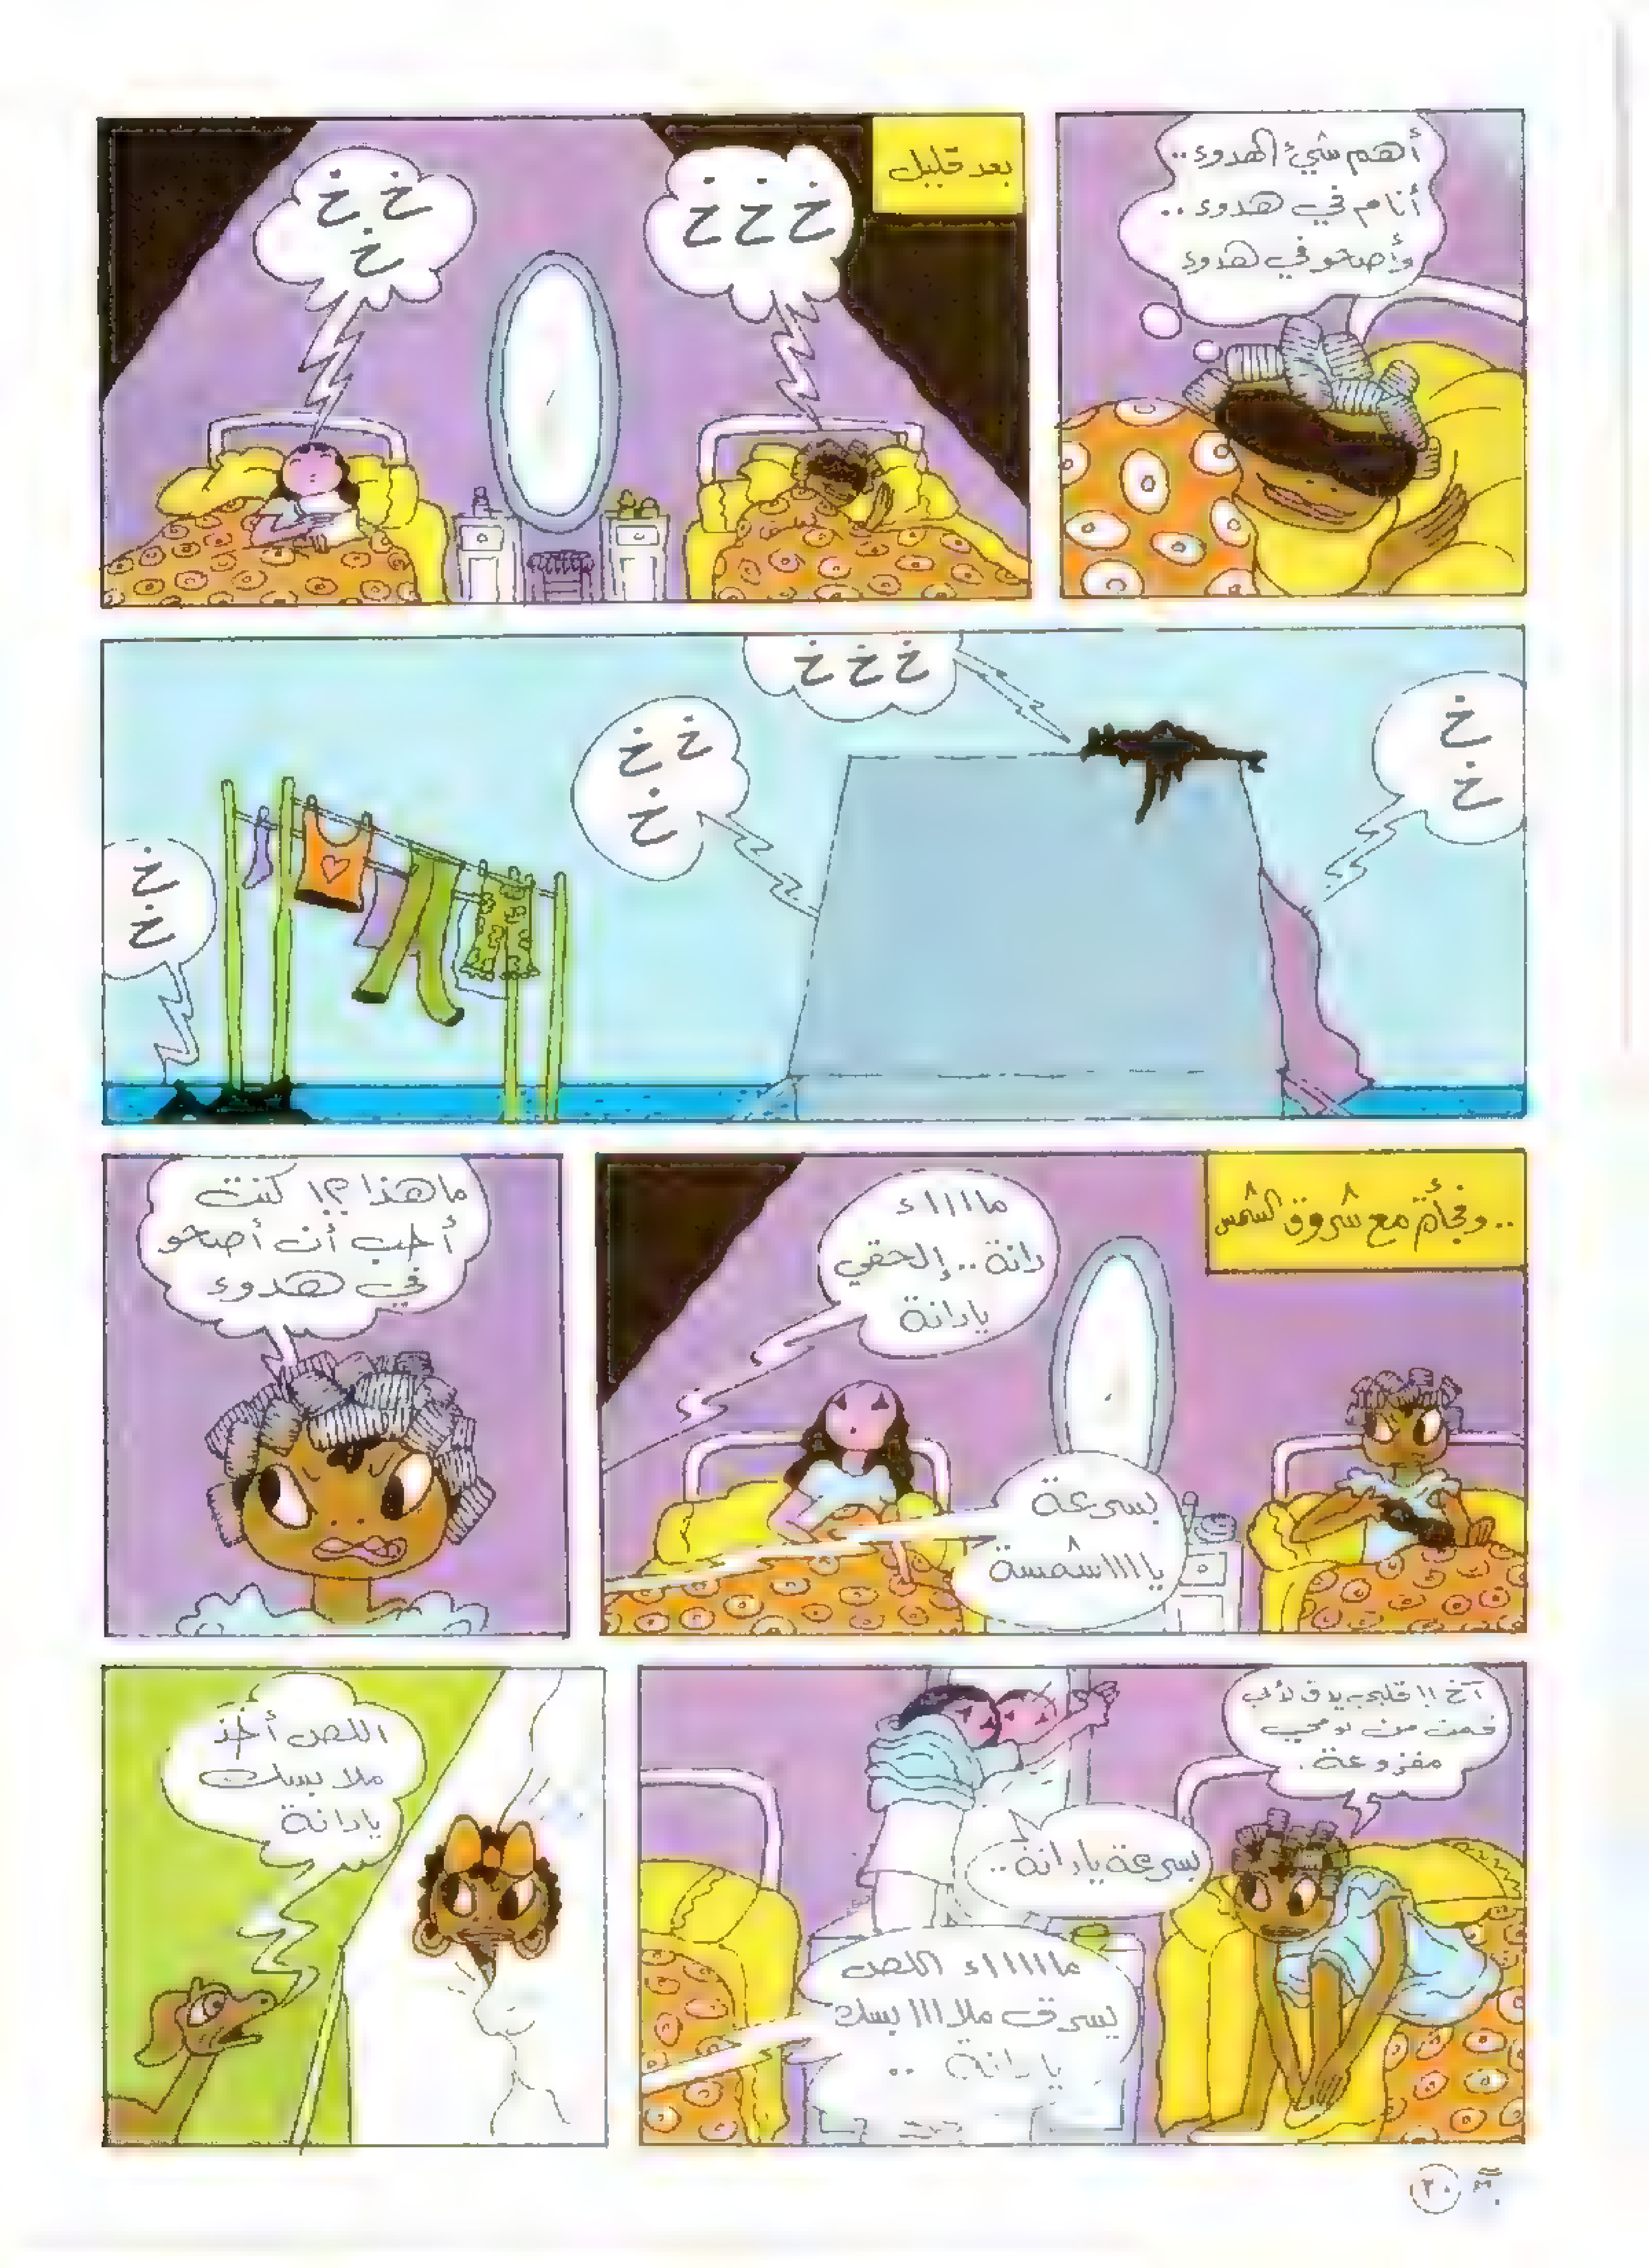 أهم شيء الهدوء..
أنام في هدوء..
وأصحو في هدوء
بعد قليل
خ خ خ
خ خ
خ
خ
خ
خ خ خ
خ خ
خ
خ
خ
..وفجأة مع شروق الشمس
ماااء
دانة.. إلحقي
يادانة
بسرعة
ياااشمسة
ماهذا؟! كنت
أحب أن أصحو
في هدوء
آخ !! قلبي يدق لأني
قمت من نومي
مفزوعة.
بسرعة يادانة..
مااااء اللص
يسرق ملااابسك
يادانة ..
اللص أخذ
ملابسك
يادانة
٢٠